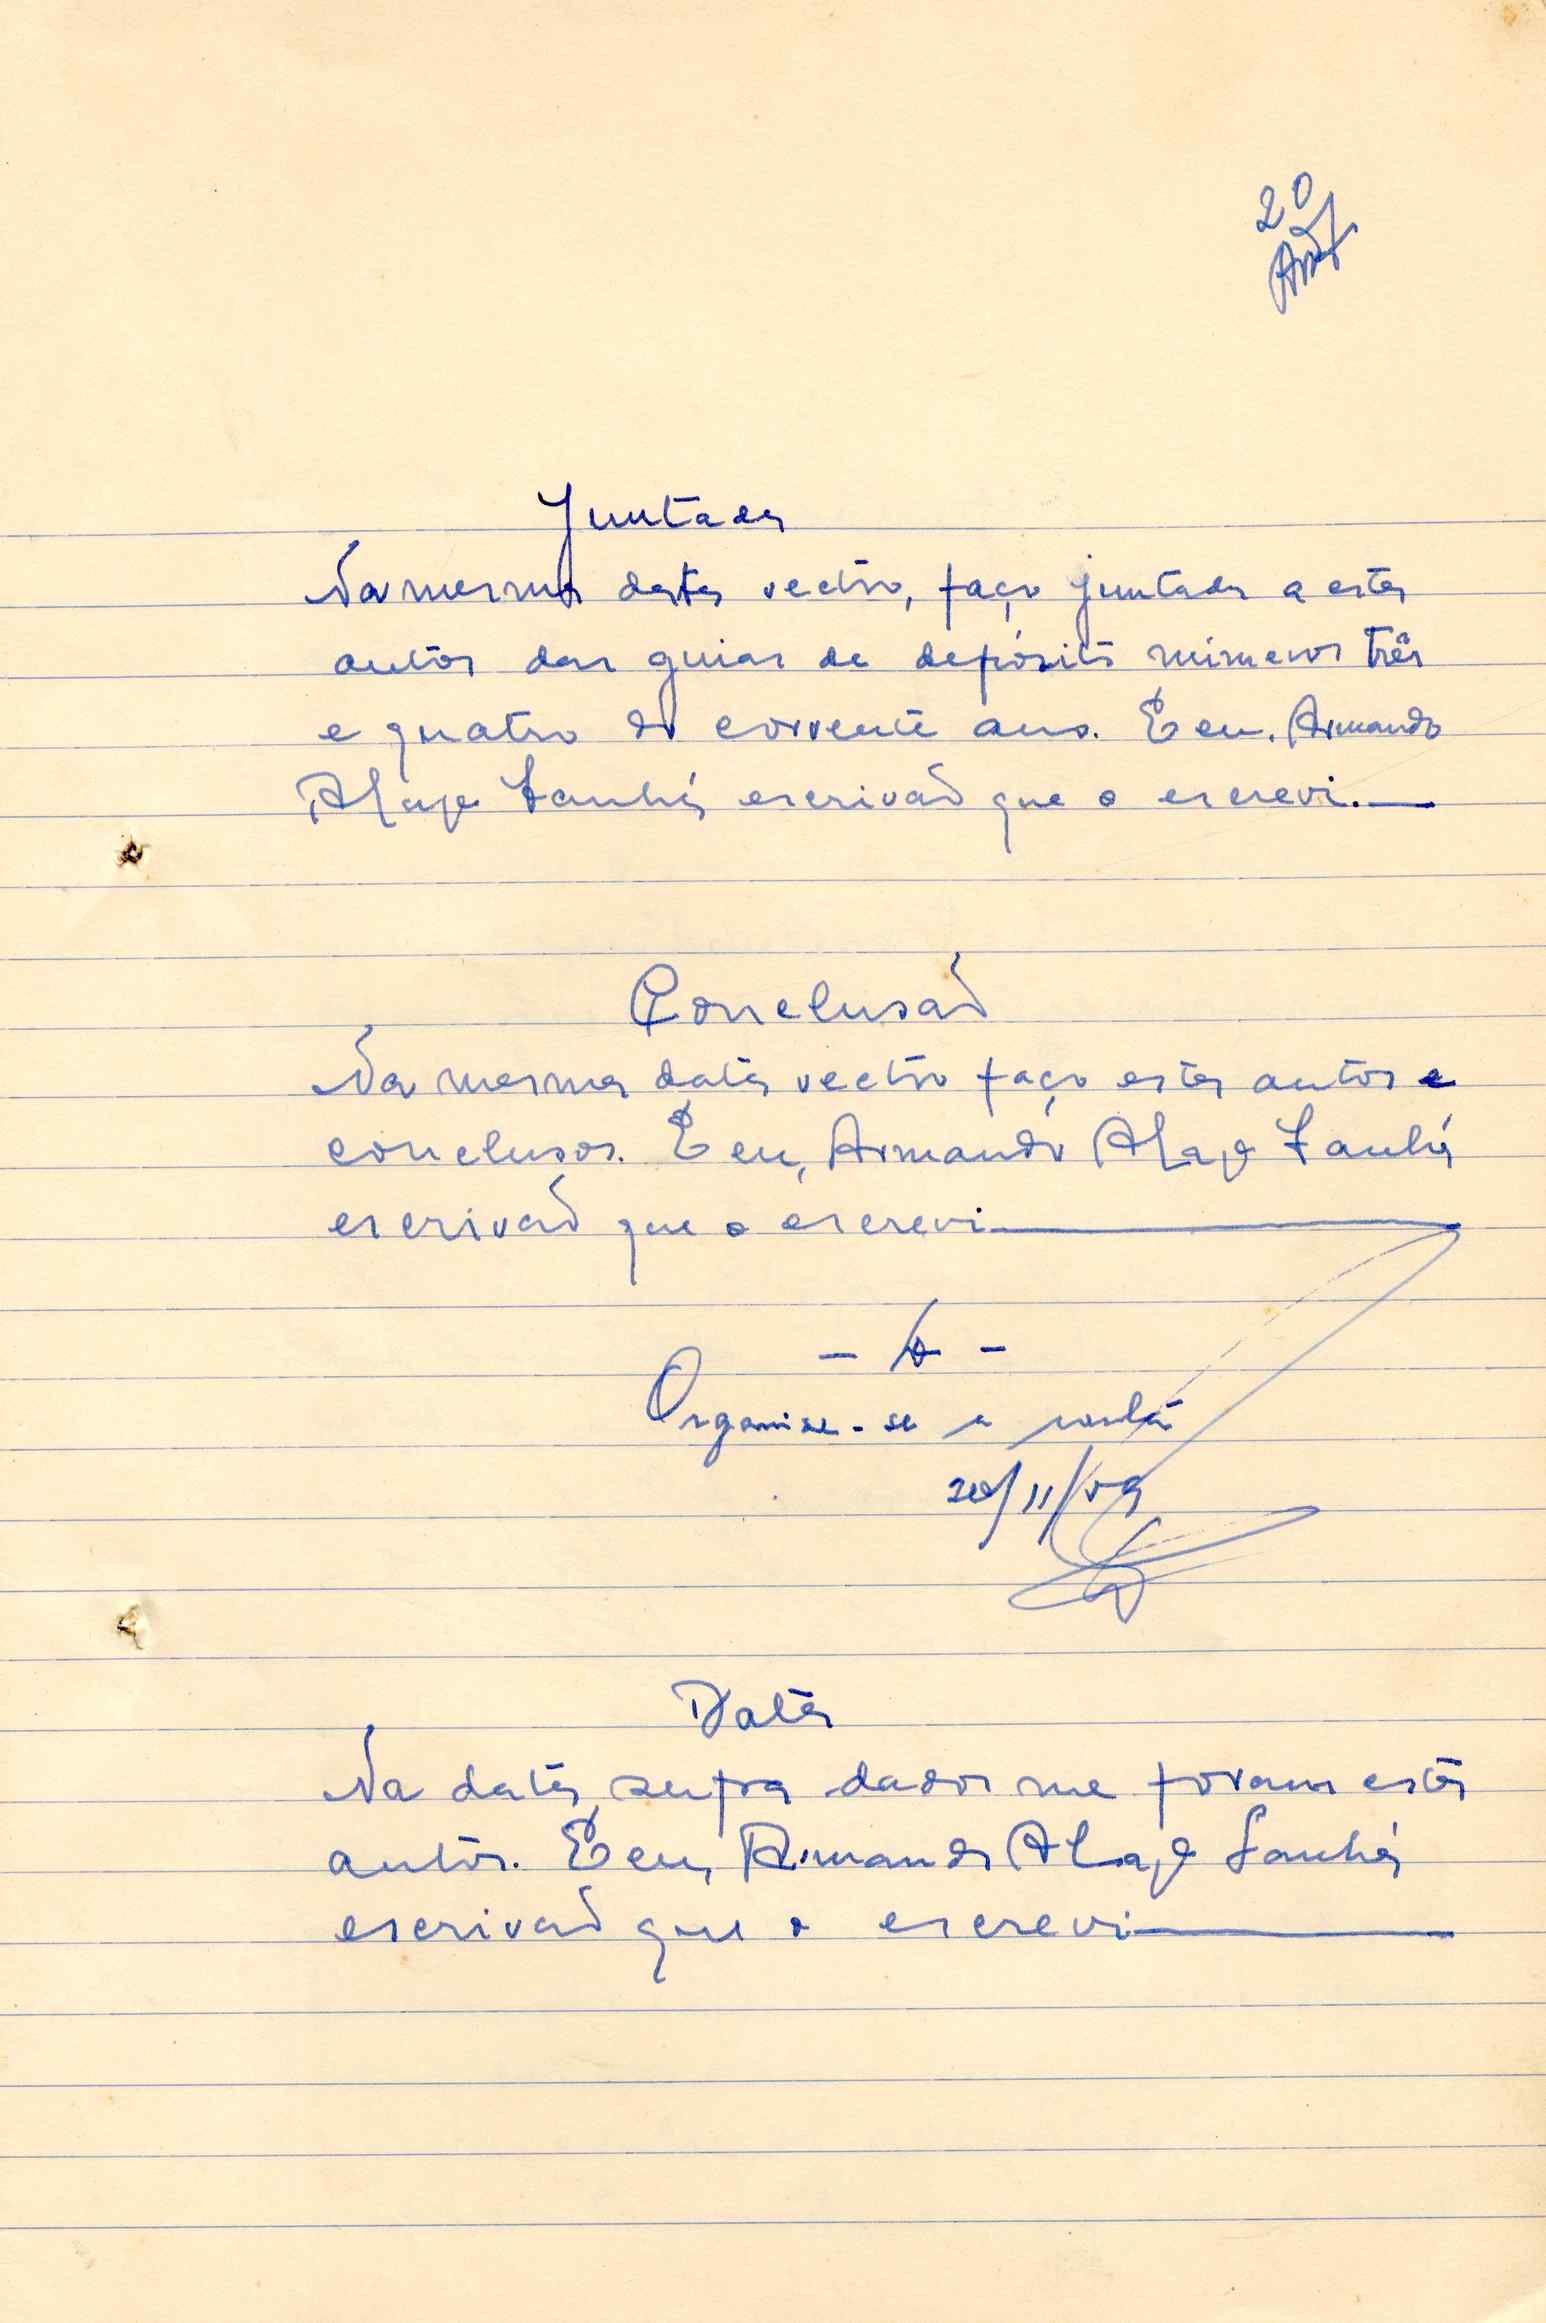 20
Juntada
Na mesma data rectro, faço juntada a estes
autos das guias de depósito números três
e quatro do corrente ano. E eu, Armando
escrivão que o escrevi.—
Conclusão
Na mesma data rectro faço estes autos
conclusos. E eu, Armando
escrivão que o escrevi—
Organize-se a conta
Data
Na data supra dados me foram estes
autos. E eu, Armando
escrivão que o escrevi—